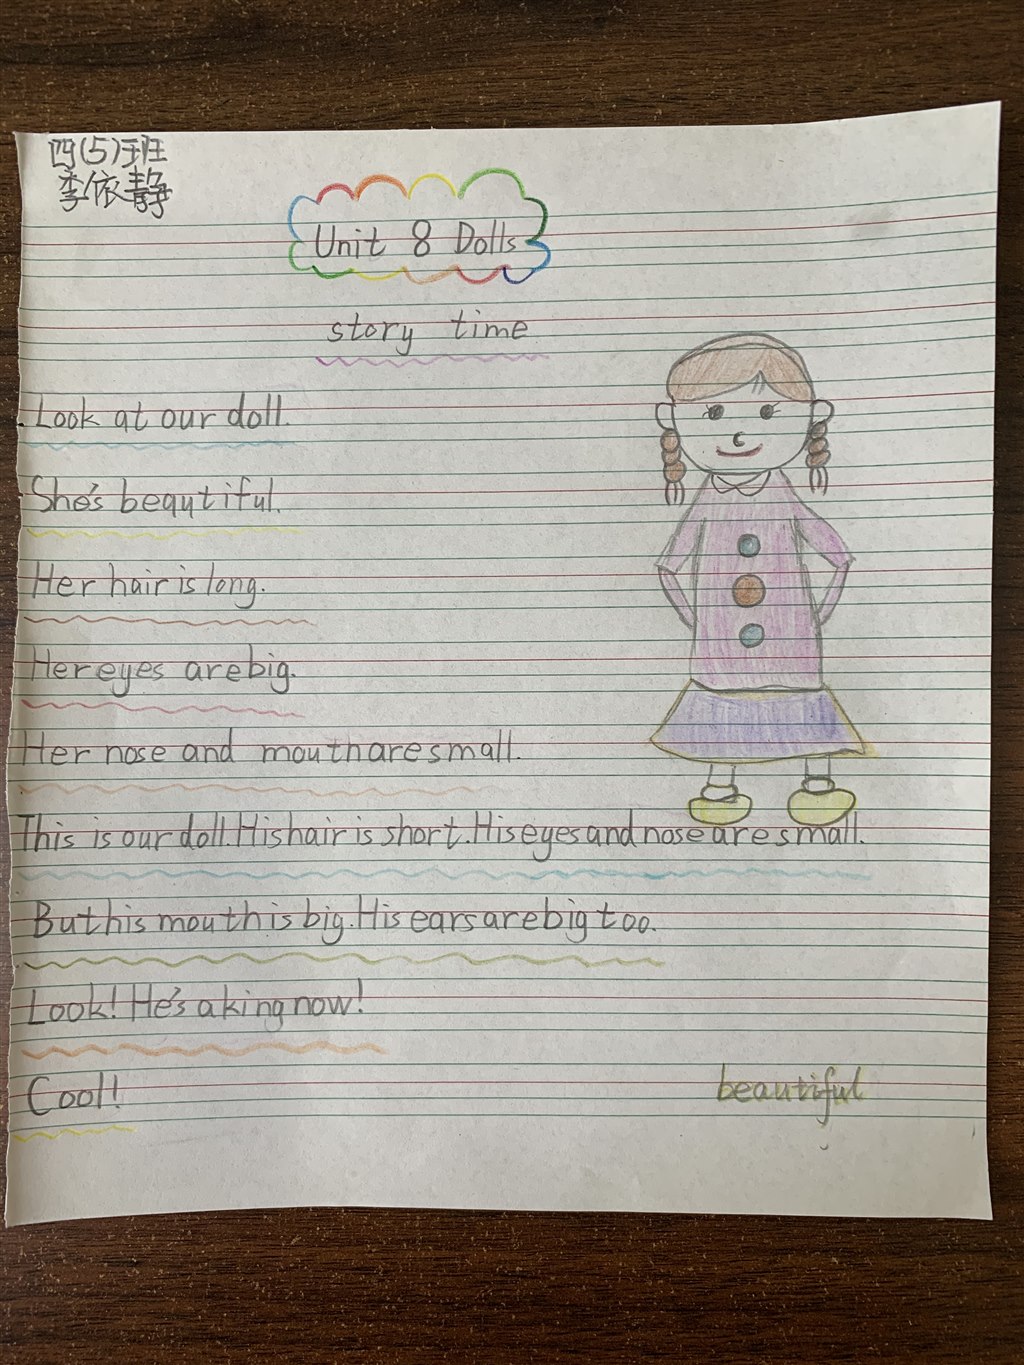 四(5)班
李依静
Unit 8 Dolls
story time
Look at our doll.
She's beautiful.
Her hair is long.
Her eyes are big.
Her nose and mouth are small.
This is our doll. His hair is short. His eyes and nose are small.
But his mouth is big. His ears are big too.
Look! He's a king now!
Cool!
beautiful